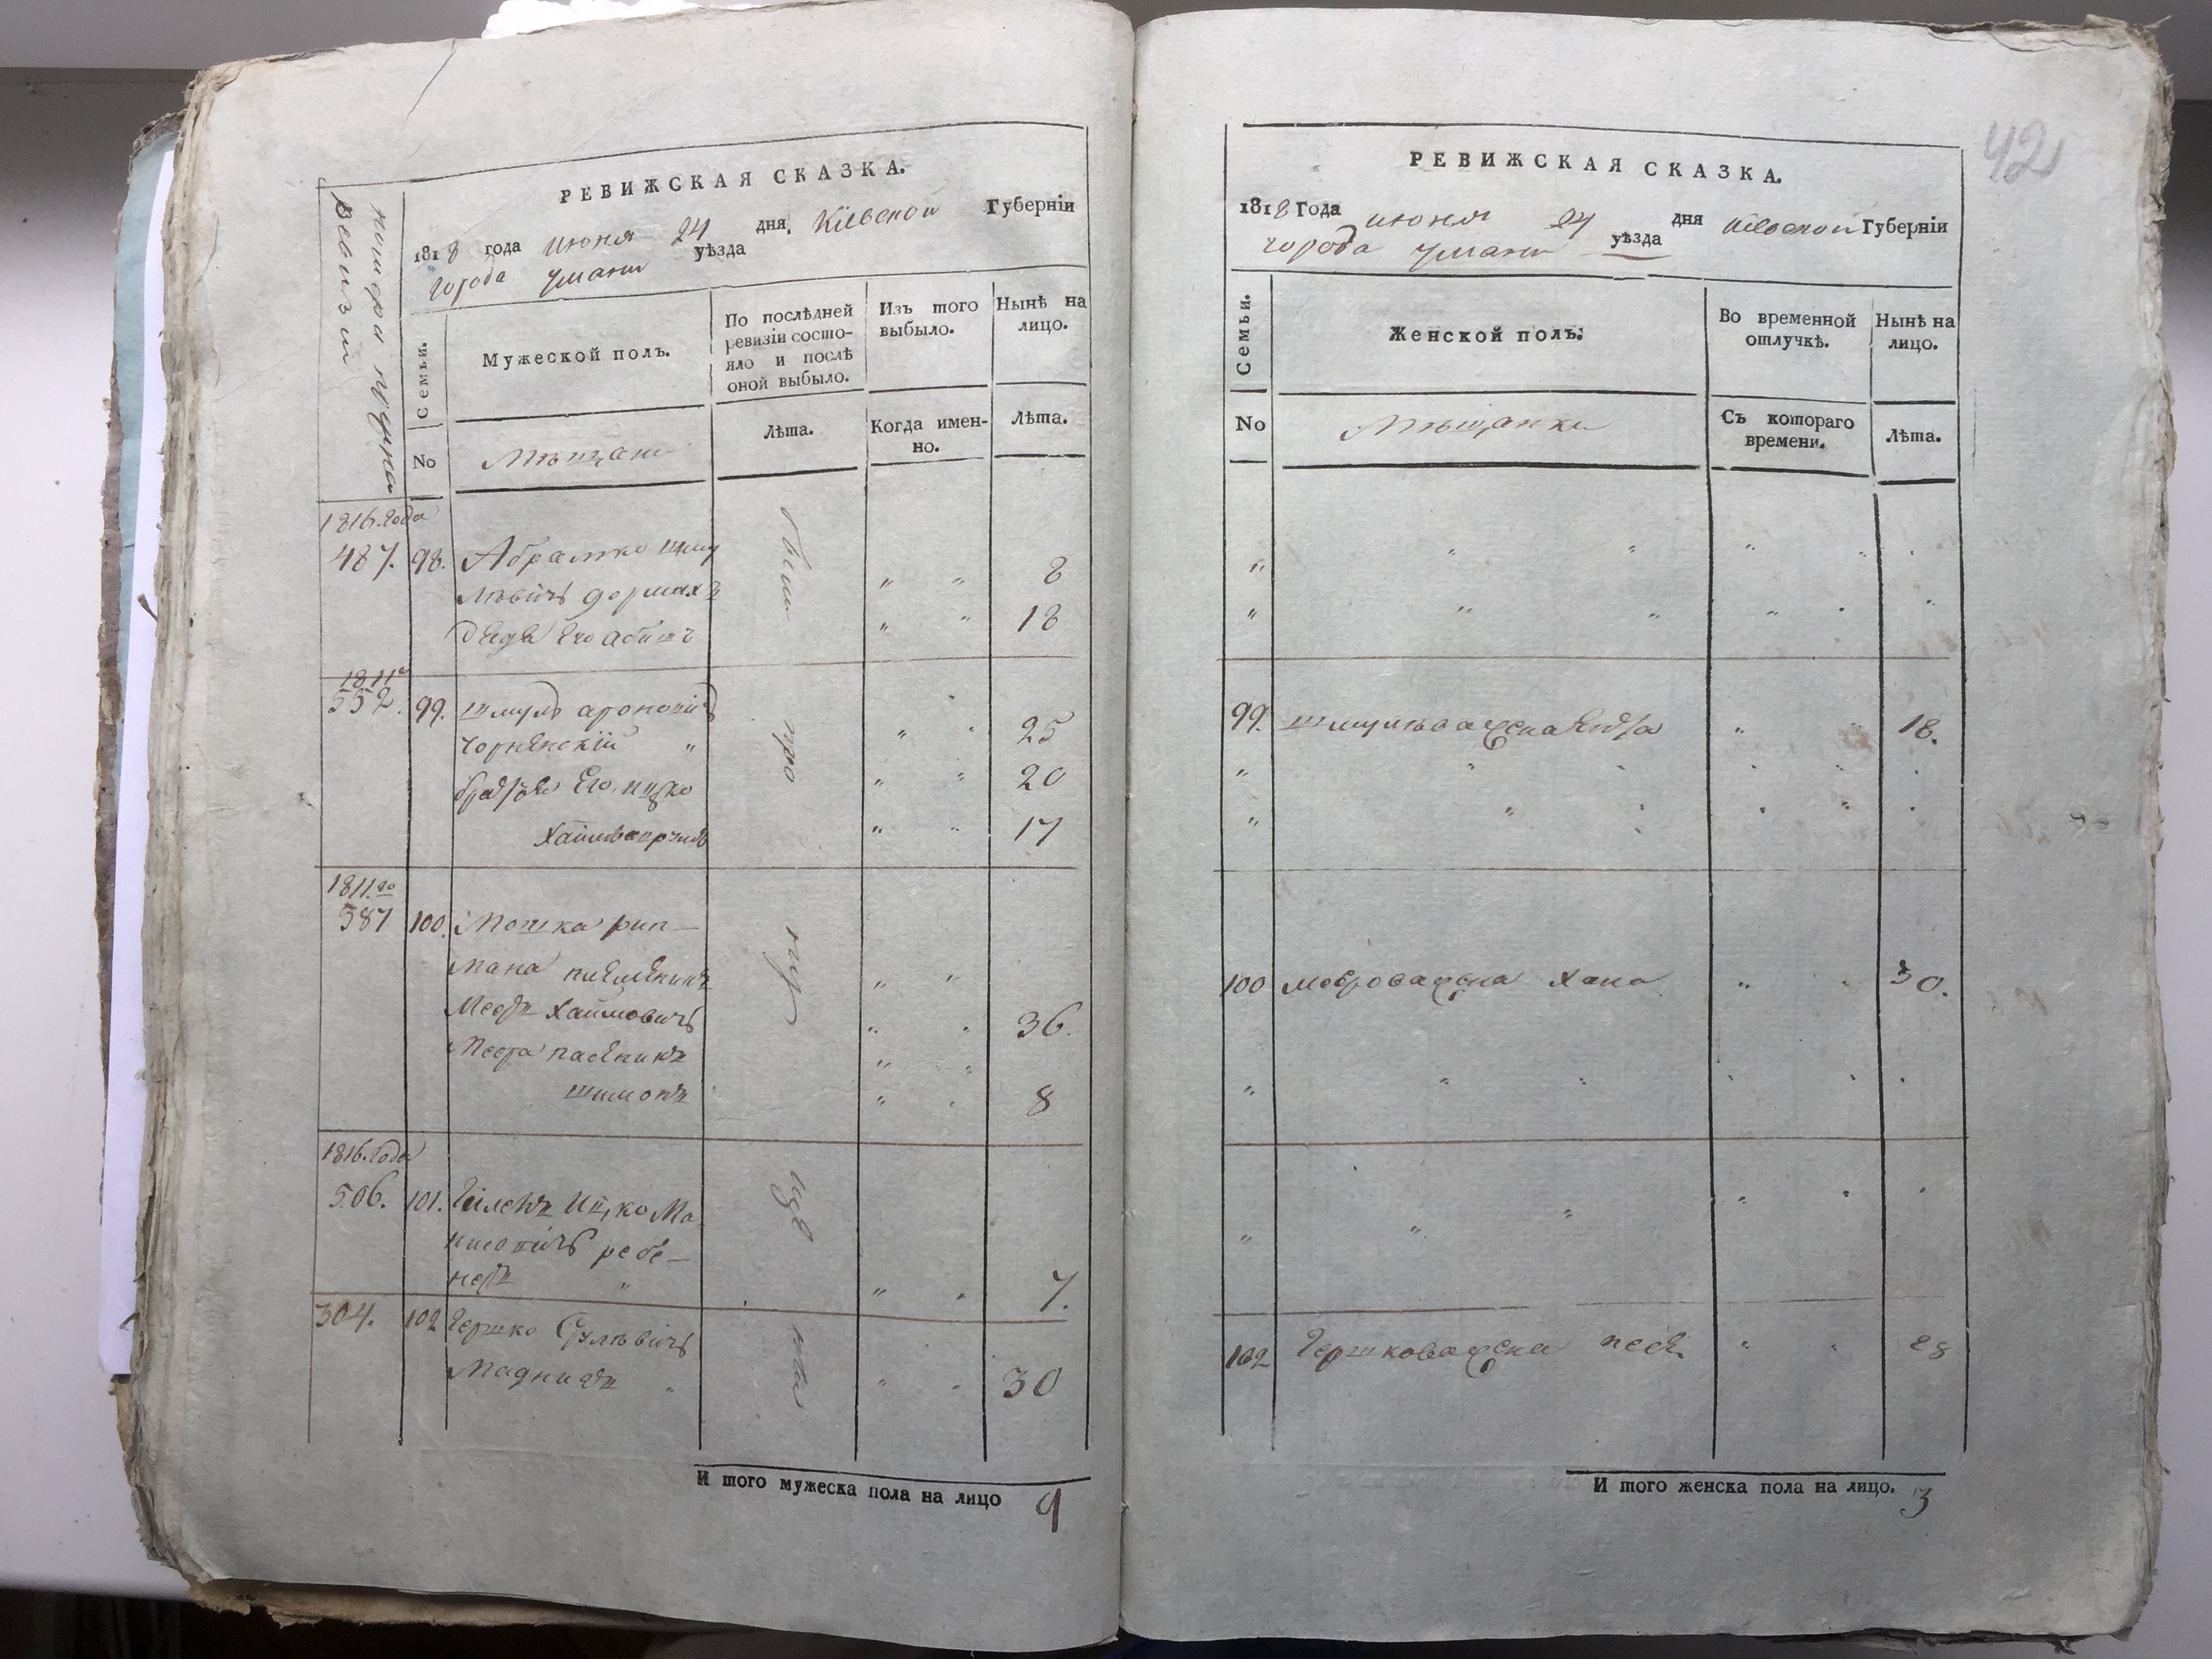 номера ...
ревизии
РЕВИЖСКАЯ СКАЗКА.
1818 года июня 24 дня, Кіевской Губерніи
города Умани уѣзда
Семьи.
Мужеской полъ.
По послѣдней ревизіи состояло и послѣ оной выбыло.
Изъ того выбыло.
Нынѣ на лицо.
No
Мѣщане
Лѣта.
Когда имен-но.
Лѣта.
1816. года
487. 98. Абрамко Шму
лѣвичъ 8
дядя Его 18
1811
552. 99. Шмуль Ароновичъ
Чорнёнскій " 25
братья Его, Ицко 20
Хаимъ 17
1811.го
587 100. Мошка Рип—
мана племѣникъ
Мееръ Хаимовичъ 36.
Меера пасѣникъ
Шимонъ 8
1816. года
506. 101. Ицко Ма
ребе—
нокъ " 7.
304. 102 Гершко Срулѣвичъ
Мадникъ " 30
были
про
изъ
И того мужеска пола на лицо 9
42
РЕВИЖСКАЯ СКАЗКА.
1818 Года июня 24 дня Кіевской Губерніи
города Умани — уѣзда
Семьи.
Женской полъ:
Во временной отлучкѣ.
Нынѣ на лицо.
No
Мѣщанки
Съ котораго времени.
Лѣта.
99. Шмулѣва жена 18.
100 Меерова жена Хана 30.
102 Гершкова жена Песя 28
И того женска пола на лицо. 3